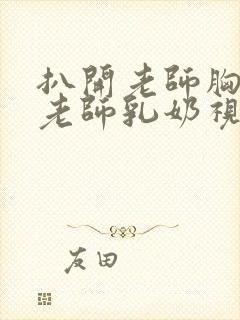 扒開老師胸
老師乳奶視
友田